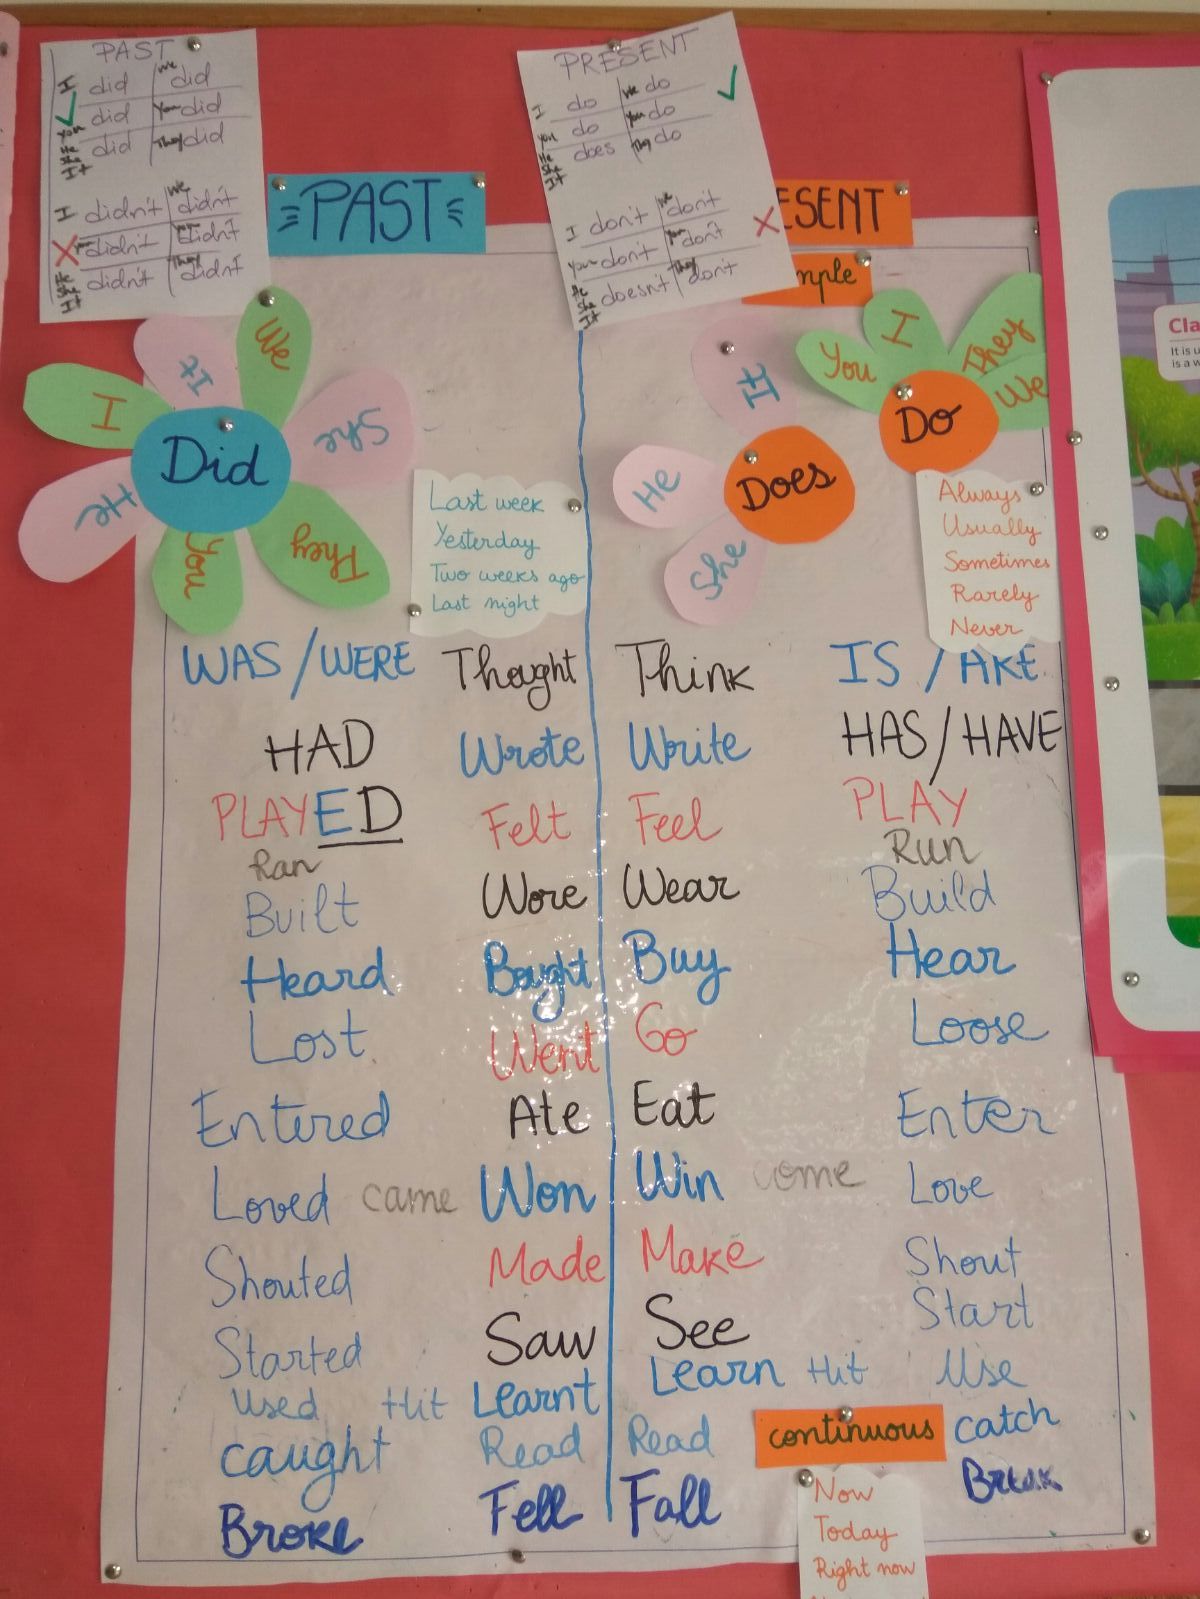 PAST
I did We did
You did You did
He She It did They did
I didn't We didn't
You didn't You didn't
He She It didn't They didn't
PRESENT
I do We do
You do You do
He She It does They do
I don't We don't
You don't You don't
He She It doesn't They don't
PAST
ESENT
mple
Did
I
It
We
She
They
You
He
Last week
Yesterday
Two weeks ago
Last night
Does
It
He
She
Do
You
I
They
We
Always
Usually
Sometimes
Rarely
Never
WAS / WERE Thought Think IS / ARE
HAD Wrote Write HAS / HAVE
PLAYED Felt Feel PLAY
Ran Run
Built Wore Wear Build
Heard Bought Buy Hear
Lost Went Go Loose
Entered Ate Eat Enter
Loved came Won Win come Love
Shouted Made Make Shout
Started Saw See Start
Used Hit Learnt Learn Hit Use
caught Read Read catch
Broke Fell Fall Break
continuous
Now
Today
Right now
Cla
It is u
is a w